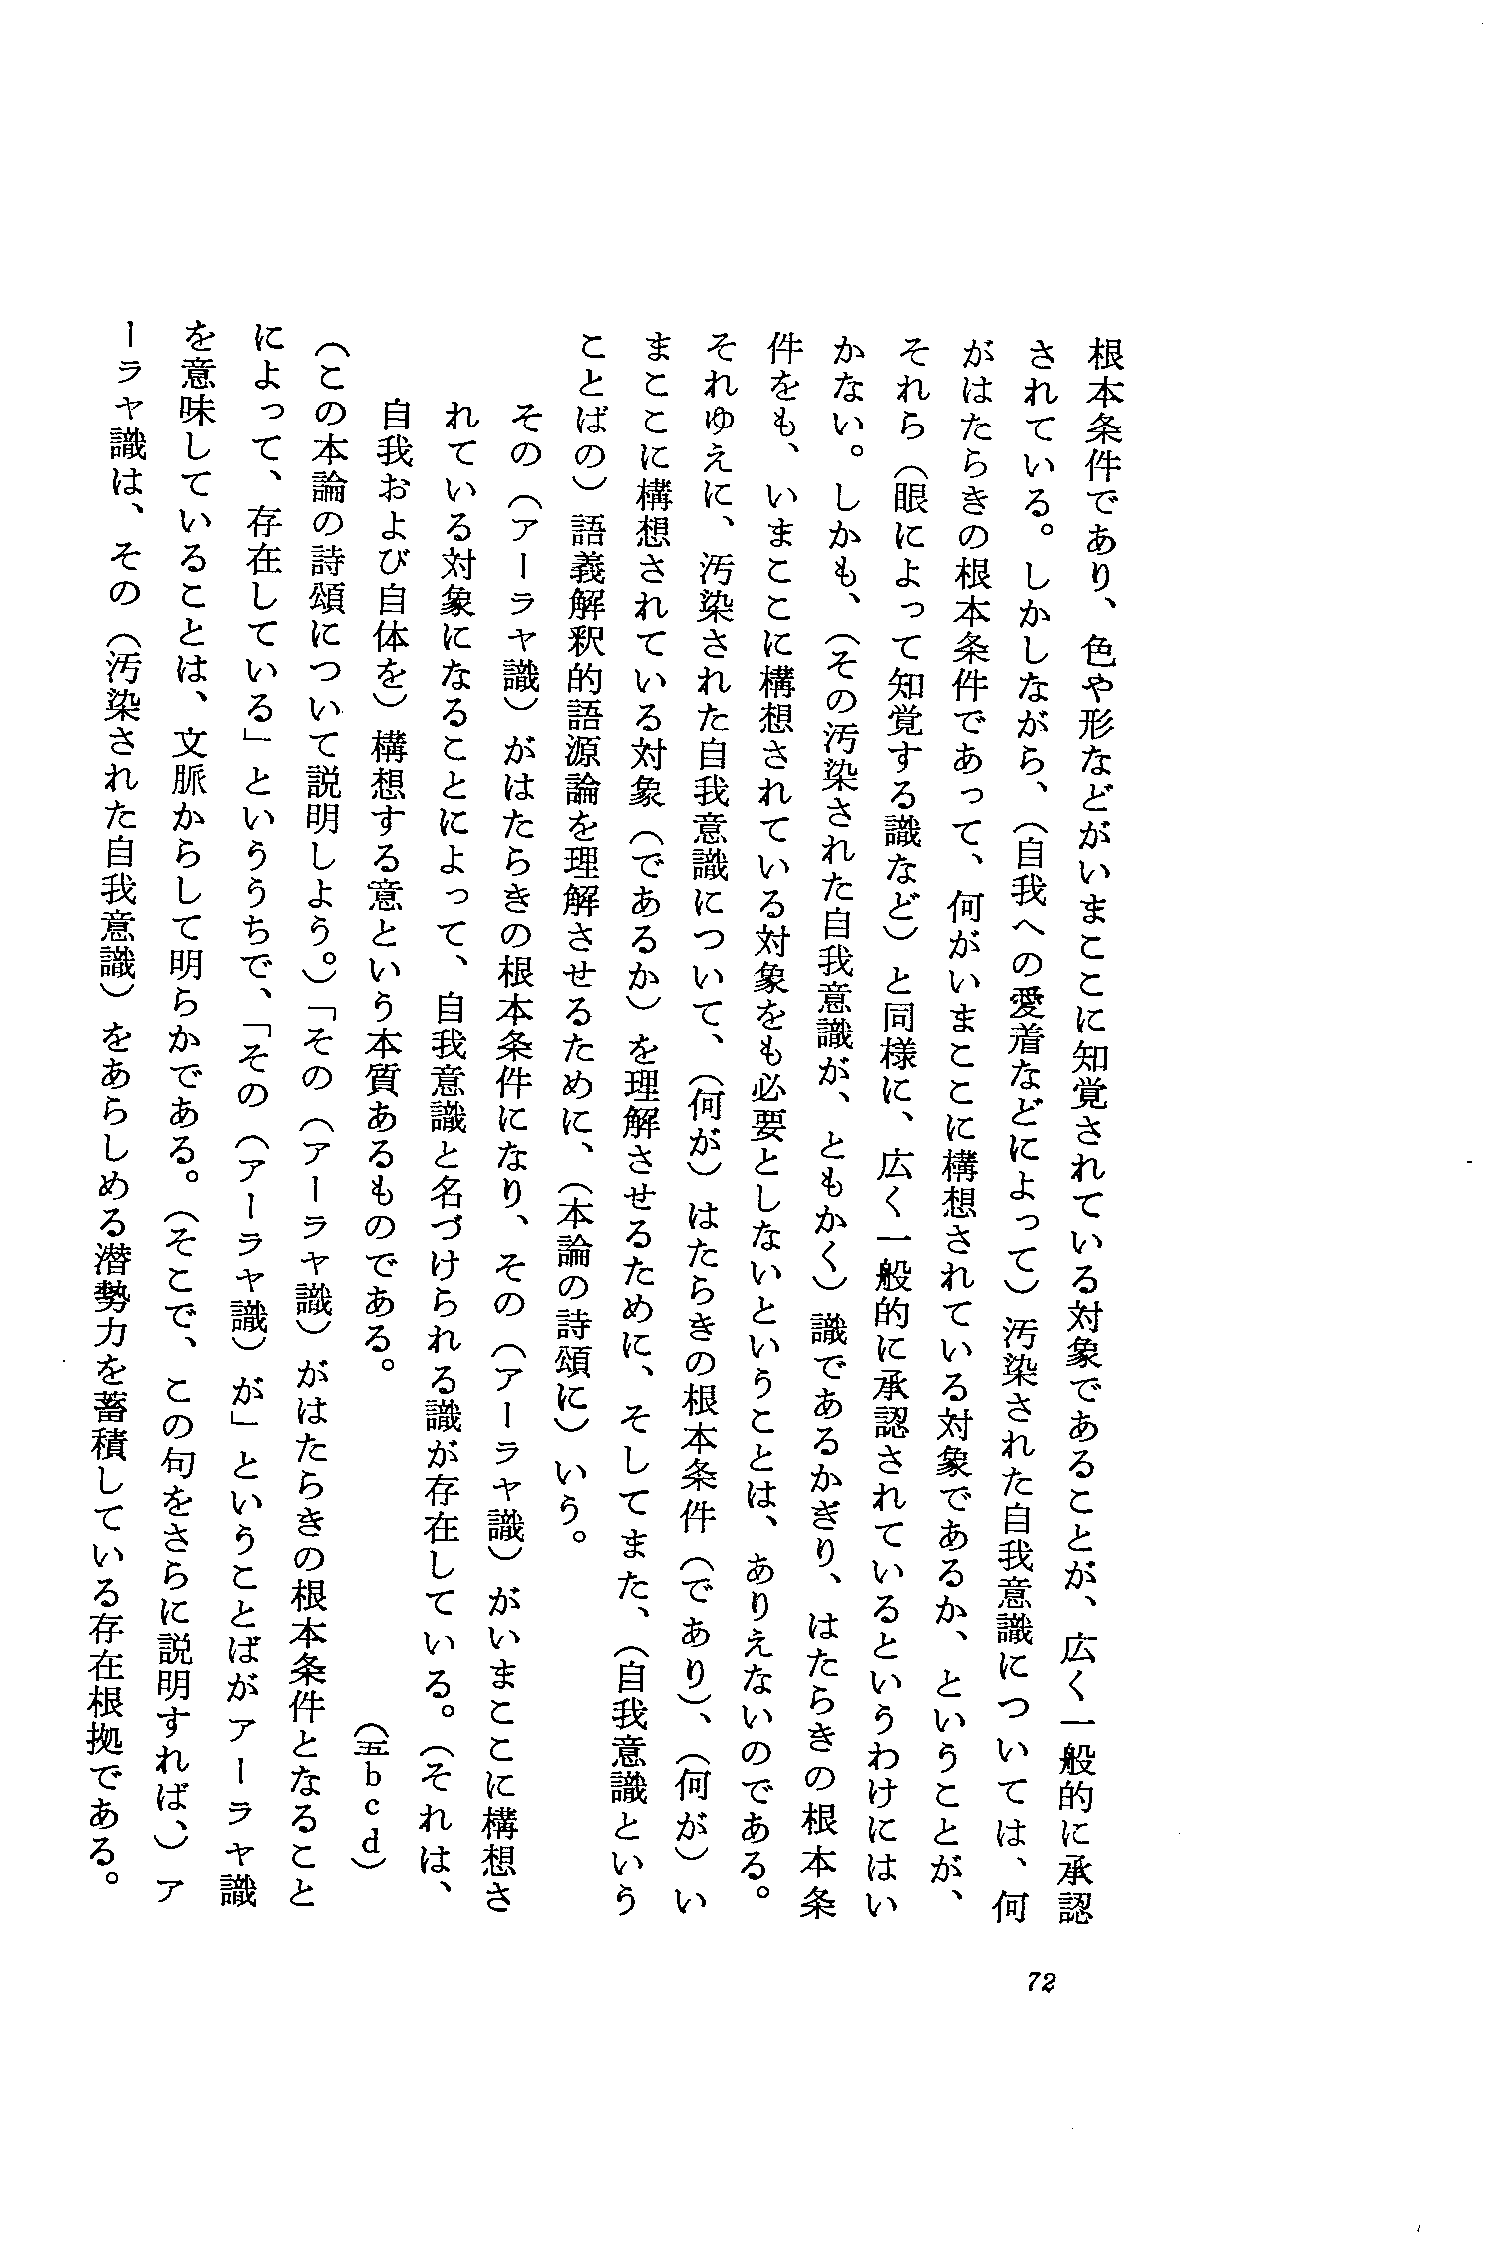 根本条件であり、色や形などがいまここに知覚されている対象であることが、広く一般的に承認
されている。しかしながら、（自我への愛着などによって）汚染された自我意識については、何
がはたらきの根本条件であって、何がいまここに構想されている対象であるか、ということが、
それら（眼によって知覚する識など）と同様に、広く一般的に承認されているというわけにはい
かない。しかも、（その汚染された自我意識が、ともかく）識であるかぎり、はたらきの根本条
件をも、いまここに構想されている対象をも必要としないということは、ありえないのである。
それゆえに、汚染された自我意識について、（何が）はたらきの根本条件（であり）、（何が）い
まここに構想されている対象（であるか）を理解させるために、そしてまた、（自我意識という
ことばの）語義解釈的語源論を理解させるために、（本論の詩頌に）いう。
その（アーラヤ識）がはたらきの根本条件になり、その（アーラヤ識）がいまここに構想さ
れている対象になることによって、自我意識と名づけられる識が存在している。（それは、
自我および自体を）構想する意という本質あるものである。（五ｂｃｄ）
（この本論の詩頌について説明しよう。）「その（アーラヤ識）がはたらきの根本条件となること
によって、存在している」といううちで、「その（アーラヤ識）が」ということばがアーラヤ識
を意味していることは、文脈からして明らかである。（そこで、この句をさらに説明すれば、）ア
ーラヤ識は、その（汚染された自我意識）をあらしめる潜勢力を蓄積している存在根拠である。
72